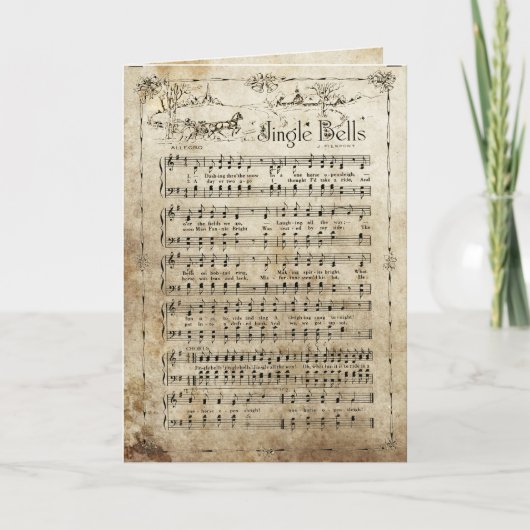 Jingle Bells
ALLEGRO J. PIERPONT
1. Dashing thro' the snow In a one horse open sleigh,
2. A day or two ago I thought I'd take a ride, And
o'er the fields we go, Laughing all the way;
soon Miss Fannie Bright Was seated by my side; The
Bells on bob-tail ring, Making spirits bright, What
horse was lean and lank, Misfortune seem'd his lot, He
fun it is to ride and sing A sleighing song to-night!
got into a drifted bank, And we, we got upsot.
CHORUS
Jingle bells! Jingle bells! Jingle all the way! Oh, what fun it is to ride in a
one-horse open sleigh! one horse open sleigh!